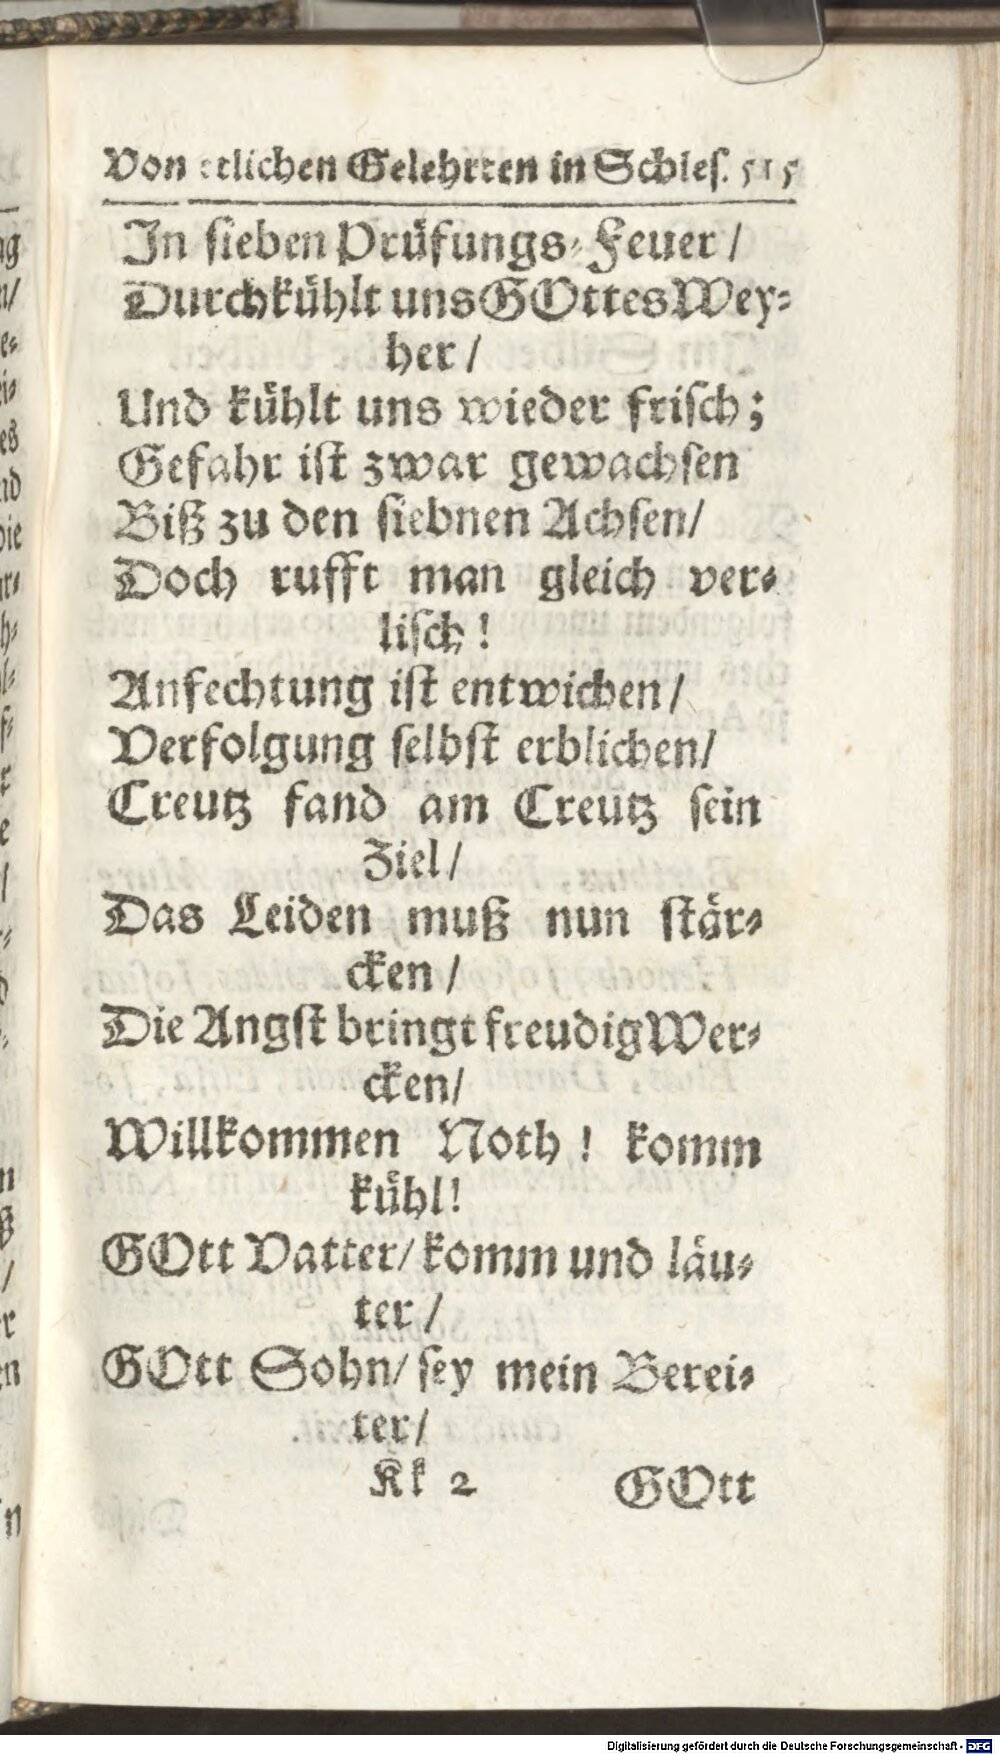 Von etlichen Gelehrten in Schles. 515
In sieben Prüfungs-Feuer /
Durchkühlt uns GOttes Wey-
her /
Und kühlt uns wieder frisch;
Gefahr ist zwar gewachsen
Biß zu den siebnen Achsen/
Doch rufft man gleich ver-
lisch!
Anfechtung ist entwichen/
Verfolgung selbst erblichen/
Creutz fand am Creutz sein
Ziel/
Das Leiden muß nun stär-
cken /
Die Angst bringt freudig Wer-
cken/
Willkommen Noth! komm
kühl!
GOtt Vatter/ komm und läu-
ter /
GOtt Sohn/ sey mein Berei-
ter/
Kk 2 GOtt
Digitalisierung gefördert durch die Deutsche Forschungsgemeinschaft - DFG